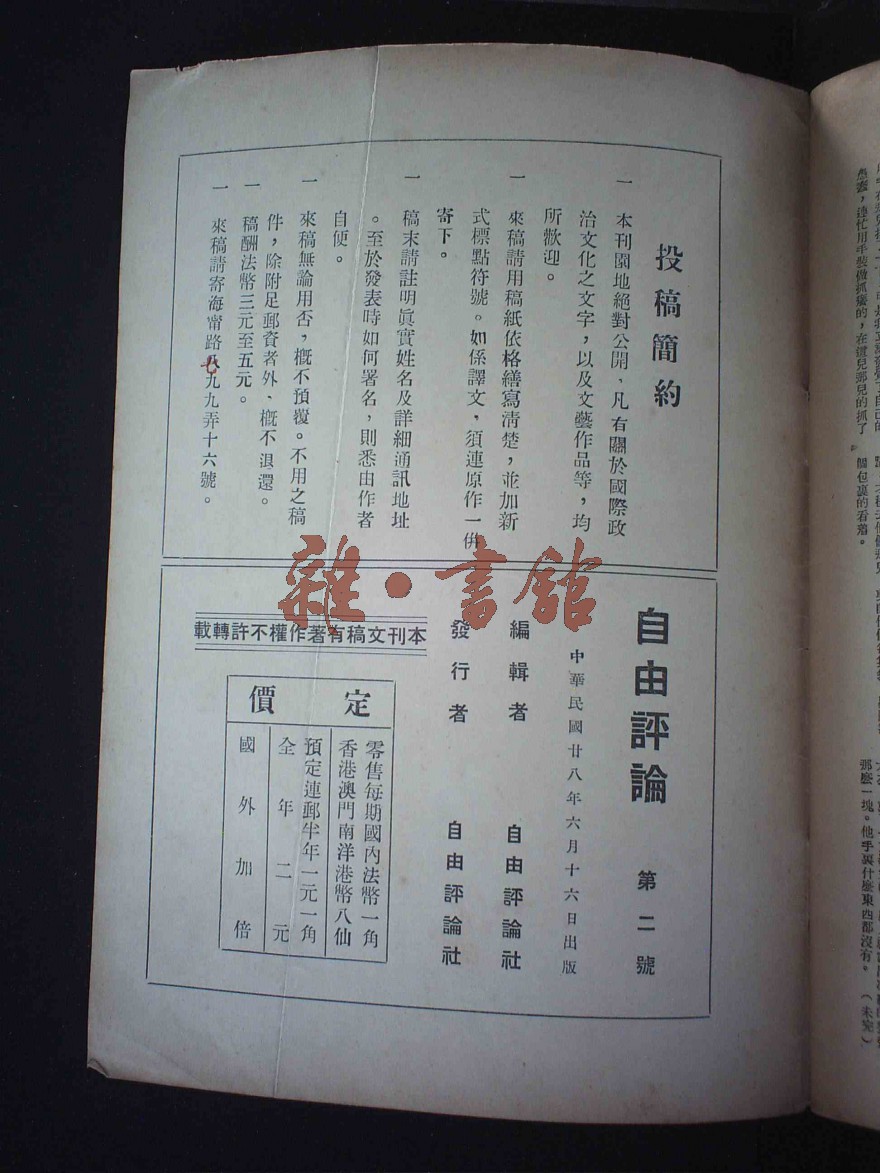 投稿簡約
一 本刊園地絕對公開、凡有關於國際政
治文化之文字，以及文藝作品等，均
所歡迎。
一 來稿請用稿紙依格繕寫清楚，並加新
式標點符號。如係譯文，須連原作一併
寄下。
一 稿末請註明眞實姓名及詳細通訊地址
。至於發表時如何署名，則悉由作者
自便。
一 來稿無論用否，概不預覆。不用之稿
件，除附足郵資者外、概不退還。
一 稿酬法幣三元至五元。
一 來稿請寄海甯路七九九弄十六號。
自由評論 第二號
中華民國廿八年六月十六日出版
編輯者 自由評論社
發行者 自由評論社
本刊文稿有著作權不許轉載
定價
零售每期國內法幣一角
香港澳門南洋港幣八仙
預定連郵半年一元一角
全年二元
國外加倍
雜·書館
愚蠢，連忙用手裝做抓癢的，在這兒那兒的抓了
個包裹的看着。
那麼一塊。他手裏什麼東西都沒有。（未完）